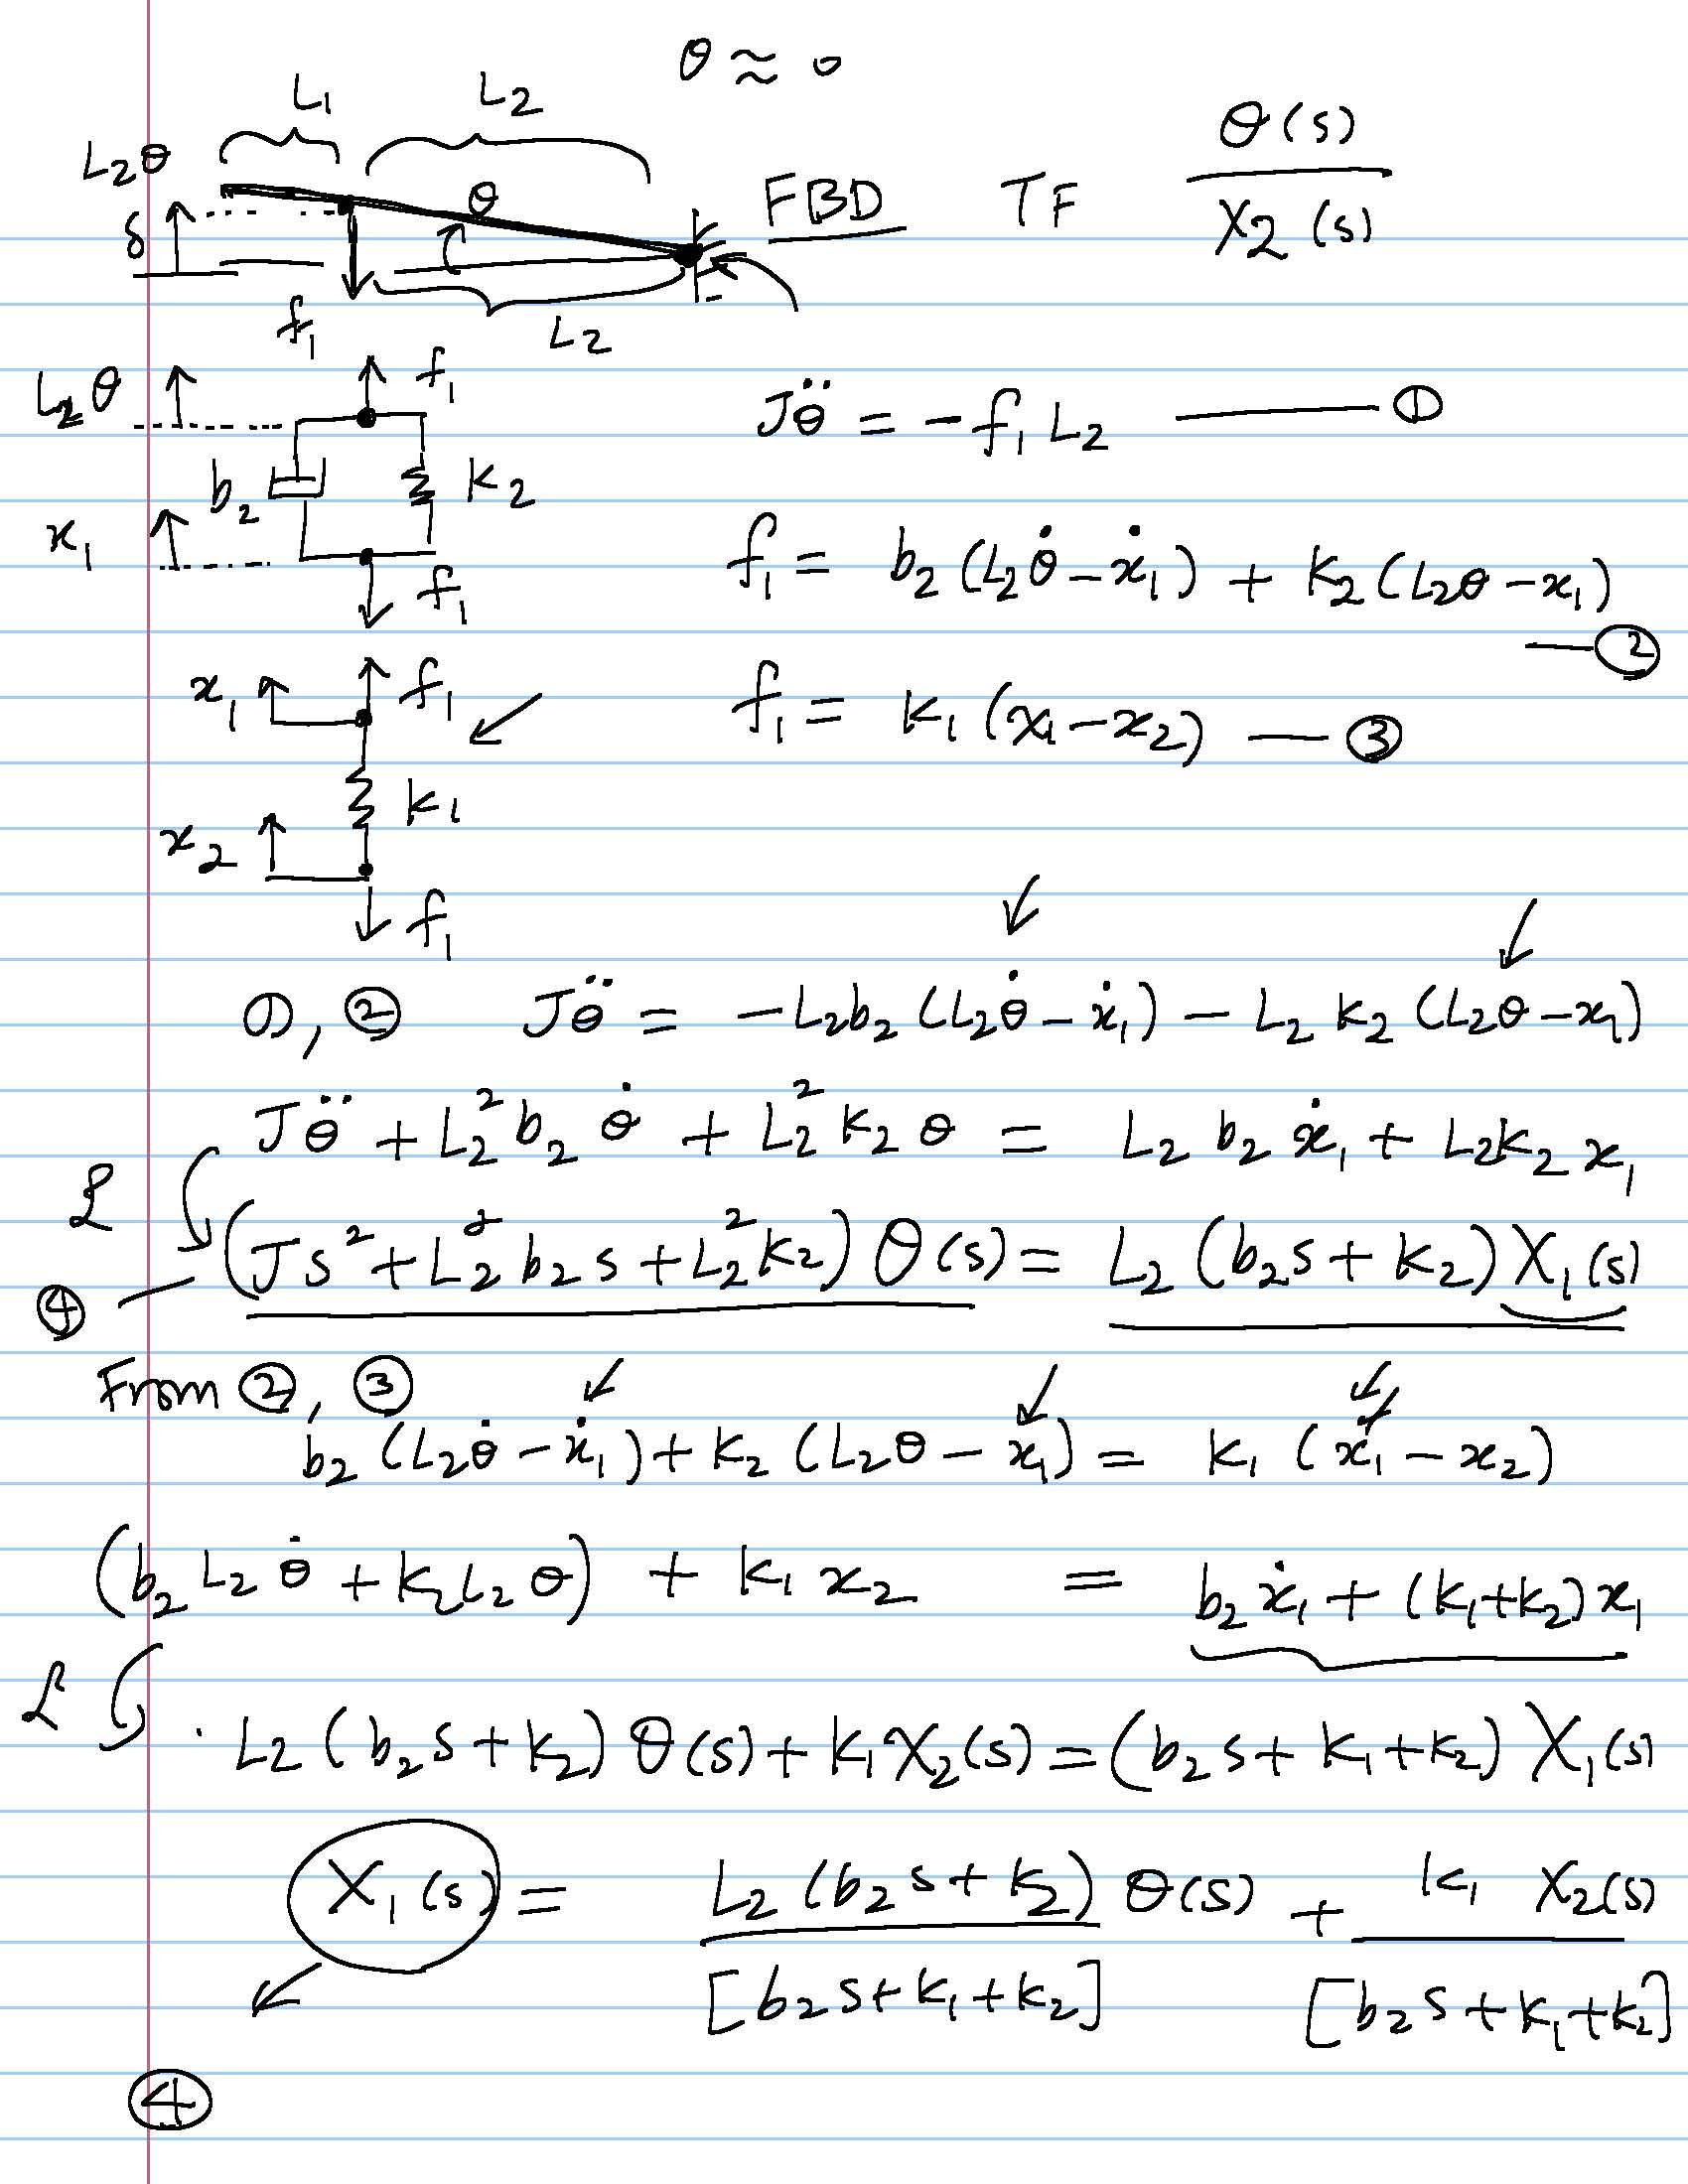 θ ≈ 0
L₁ L₂
L₂θ θ FBD TF θ(s)/X₂(s)
δ
f₁ L₂
L₂θ f₁ Jθ̈ = -f₁L₂ — ①
b₂ k₂
x₁ f₁ f₁ = b₂(L₂θ̇ - ẋ₁) + k₂(L₂θ - x₁)
— ②
x₁ f₁ f₁ = k₁(x₁ - x₂) — ③
k₁
x₂
f₁
①, ② Jθ̈ = -L₂b₂(L₂θ̇ - ẋ₁) - L₂k₂(L₂θ - x₁)
Jθ̈ + L₂²b₂θ̇ + L₂²k₂θ = L₂b₂ẋ₁ + L₂k₂x₁
ℒ (Js² + L₂²b₂s + L₂²k₂)θ(s) = L₂(b₂s + k₂)X₁(s)
④
From ②, ③
b₂(L₂θ̇ - ẋ₁) + k₂(L₂θ - x₁) = k₁(x₁ - x₂)
(b₂L₂θ̇ + k₂L₂θ) + k₁x₂ = b₂ẋ₁ + (k₁+k₂)x₁
ℒ L₂(b₂s + k₂)θ(s) + k₁X₂(s) = (b₂s + k₁ + k₂)X₁(s)
X₁(s) = L₂(b₂s + k₂)θ(s) + k₁ X₂(s)
[b₂s + k₁ + k₂] [b₂s + k₁ + k₂]
④